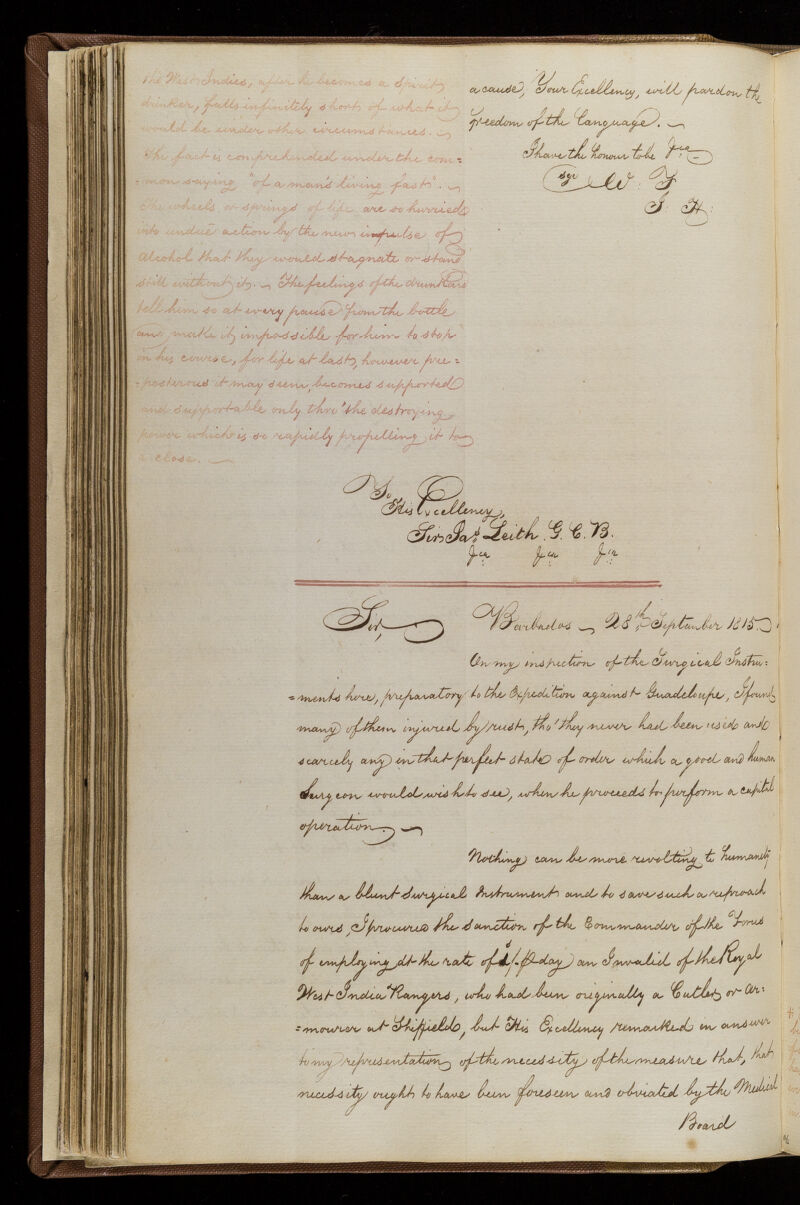 the West Indies, after he becomes a Spirit
drinker, falls infinitely short of what it
would be under other circumstances.
The fact is comprehended under the com=
=mon saying "of a man's living fast".
The wheels or springs of life are so hurried
into undue action by the new impulse of
Alcohol that they would stagnate or stand
still without it. The feelings of the drunkard
tell him so at every pause from the bottle
and make it impossible for him to stop
in his course, for life at last, however pre=
=posterous it may seem, becomes supported
and supportable only thro' the destroying
power which is so rapidly propelling it to
a close.
a cause, Your Excellency, will pardon the
freedom of the language.
I have the honour to be &ca
W. F
I. H.
To
His Excellency,
Sir Jas. Leith. G. C. B.
&ca &ca &ca
Sir, Barbados 28th September 1815
On my inspection of the Surgical Instru=
=ments here, preparatory to the Expedition against Guadeloupe, I found
many of them injured by rust, tho' they never had been used and
scarcely any in that perfect state of order which a good and human
Surgeon would wish to see, when he proceeds to perform a capital
operation.
Nothing can be more revolting to humanity
than a blunt Surgical Instrument and to save such a reproach
to ours, I procured the sanction of the Commander of the Forces
of employing at the rate of 1/. P day an Invalid of the Royal
West India Rangers, who had been originally a Cutler or Ar=
=mourer at Sheffield, but His Excellency remarked in answer
to my representation of the necessity of the measure that, that
necessity ought to have been foreseen and obviated by the Medical
Board